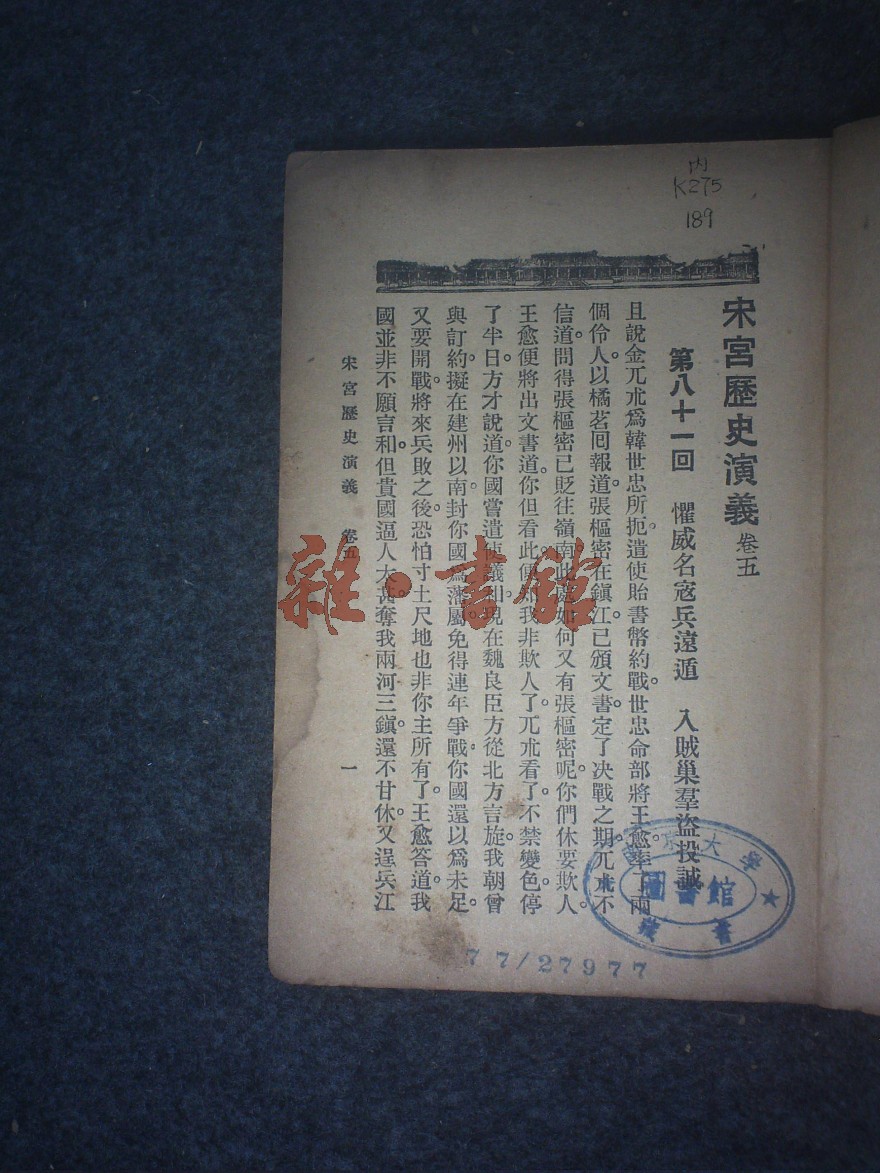 内
K275
189
宋宮歷史演義 卷五
第八十一回 懼威名寇兵遠遁 入賊巢羣盜投誠
且說金兀朮爲韓世忠所扼。遣使貽書幣約戰。世忠命部將王愈率了兩
個伶人。以橘茗囘報道。張樞密在鎮江。已頒文書。定了決戰之期。兀朮不
信道。聞得張樞密已貶往嶺南。此處如何又有張樞密呢。你們休要欺人。
王愈便將出文書道。你但看此便知我非欺人了。兀朮看了。不禁變色。停
了半日。方才說道。你國嘗遣使議和。現在魏良臣方從北方言旋。我朝曾
與訂約。擬在建州以南。封你國爲藩屬。免得連年爭戰。你國還以爲未足。
又要開戰。將來兵敗之後。恐怕寸土尺地也非你主所有了。王愈答道。我
國並非不願言和。但貴國逼人太甚。奪我兩河三鎭。還不甘休。又逞兵江
宋宮歷史演義 卷五 一
雜·書館
大學
圖書館
藏書
77/27977